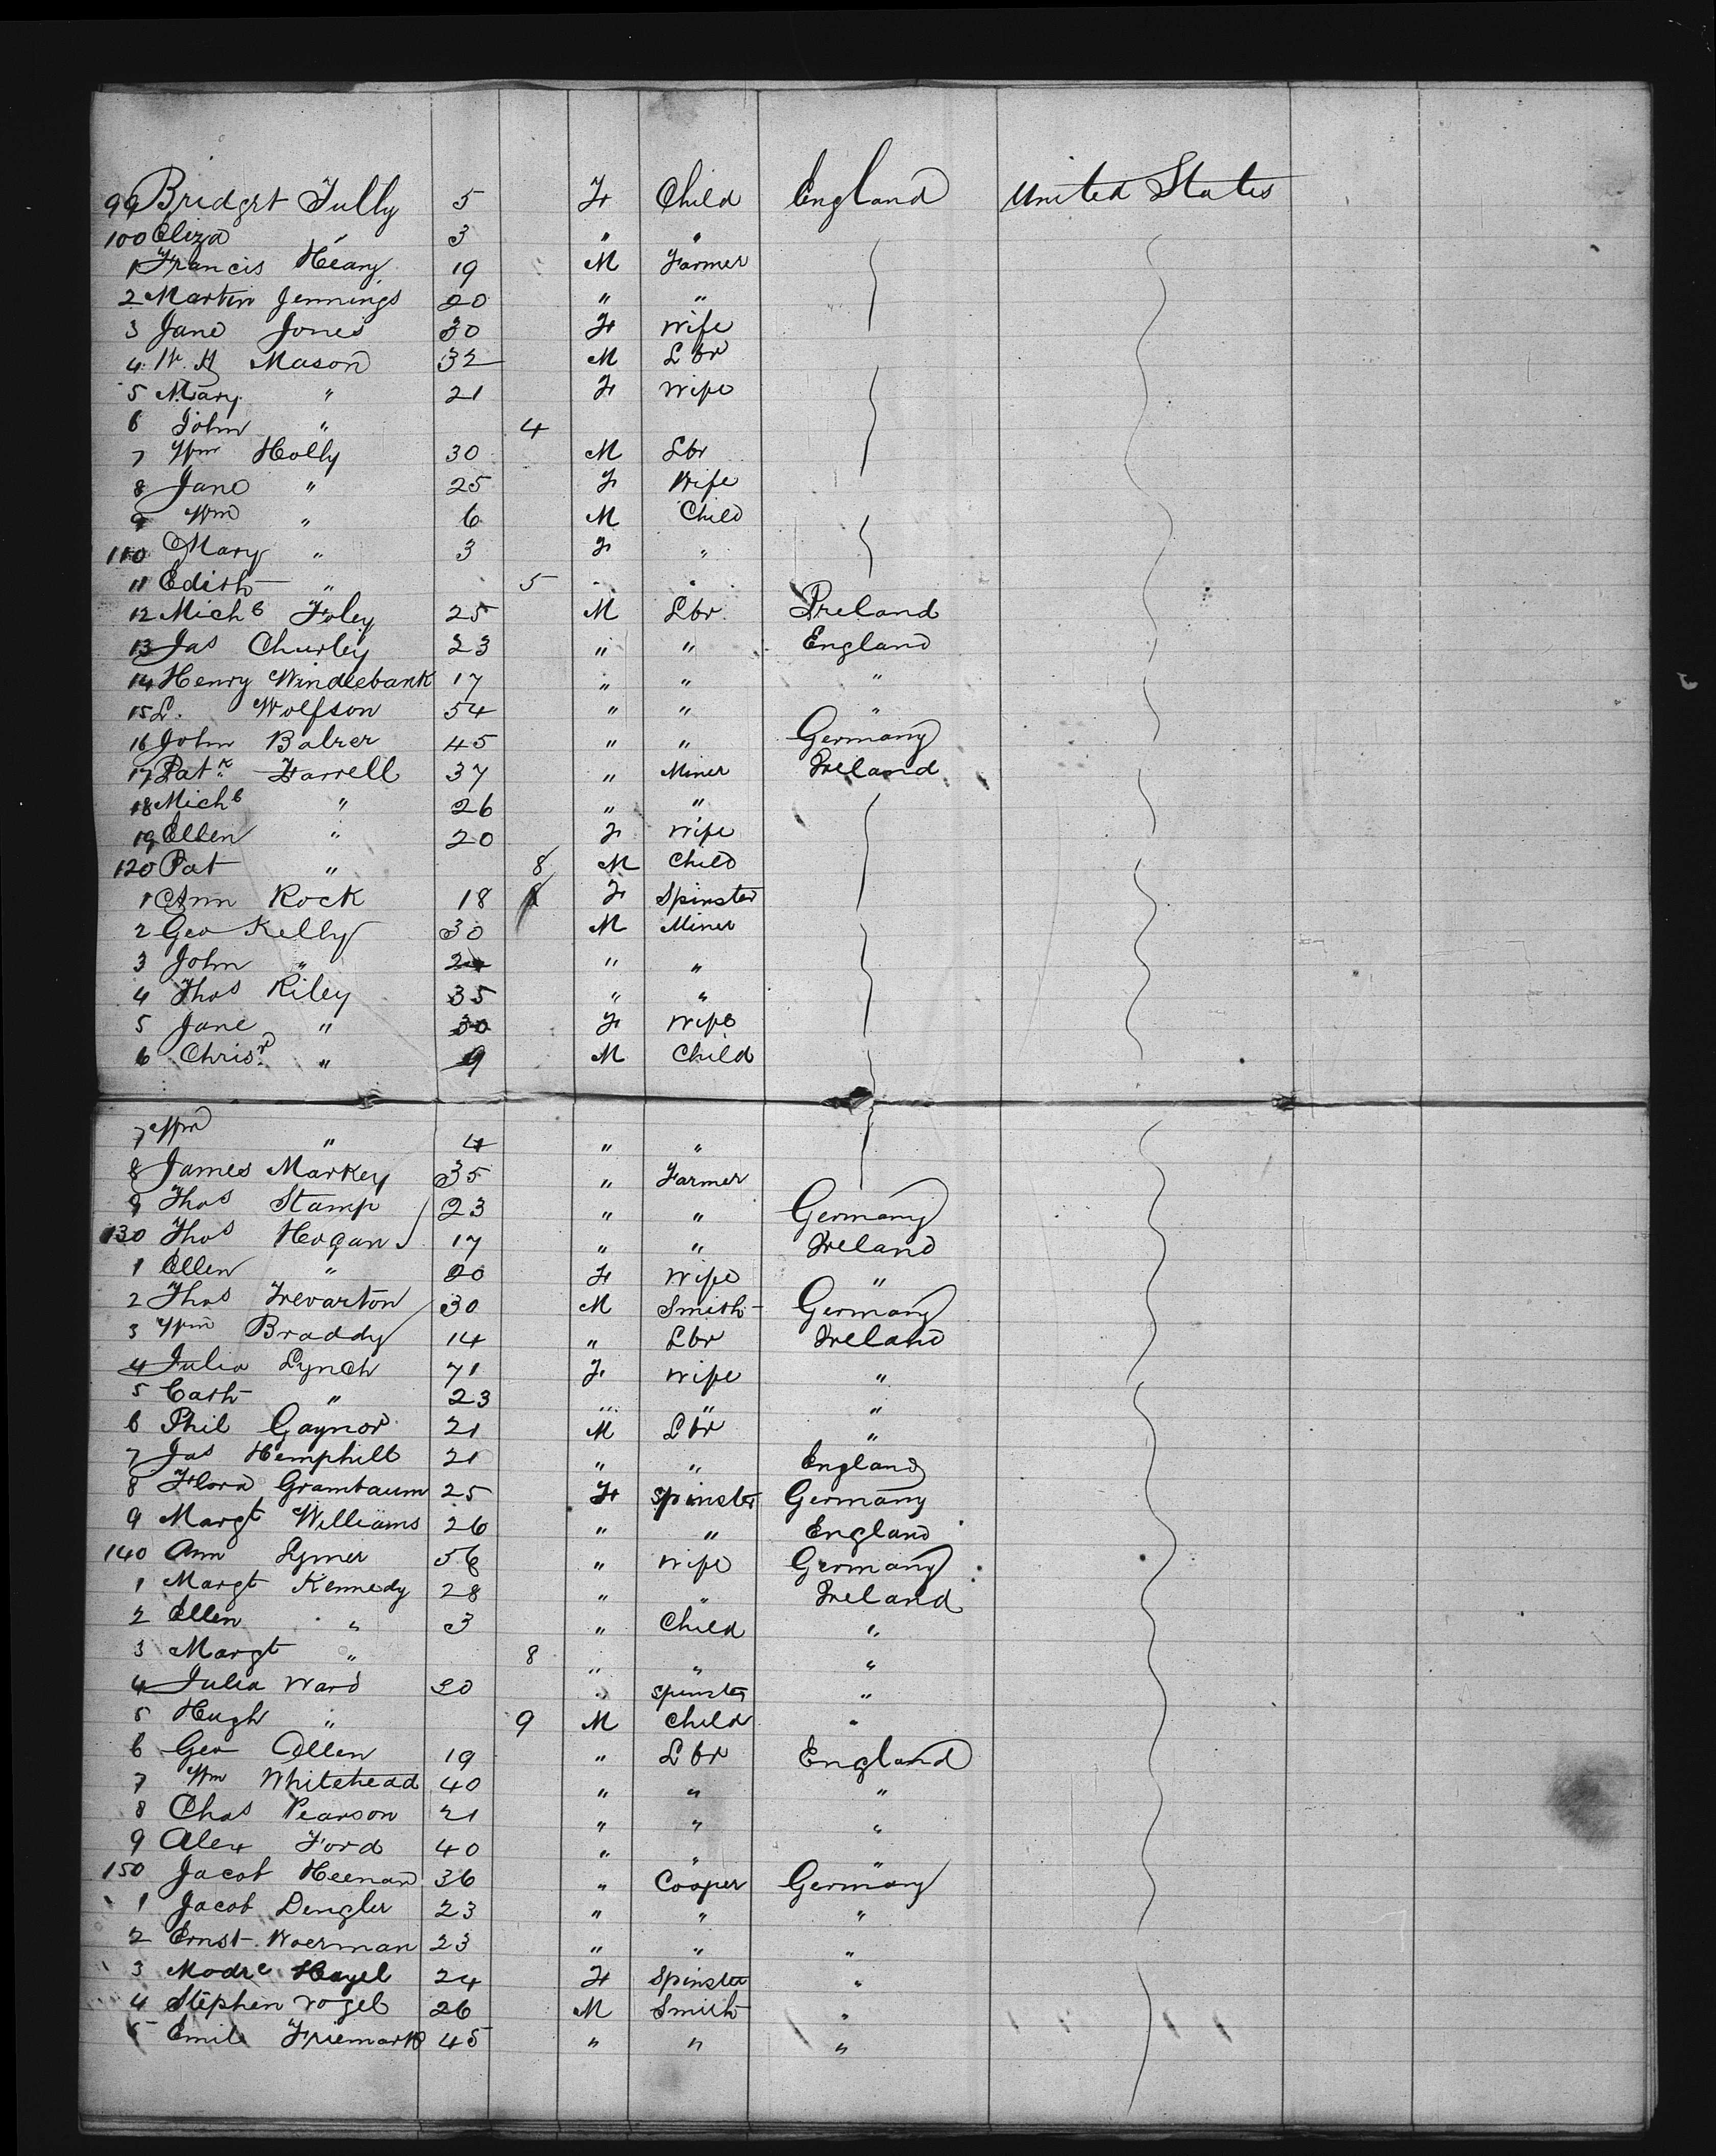 99 Bridget Tully 5 F Child England United States
100 Eliza 3 " "
1 Francis Heany 19 M Farmer
2 Martin Jennings 20 " "
3 Jane Jones 30 F Wife
4 W. H Mason 32 M Lbr
5 Mary " 21 F Wife
6 John " 4
7 Wm Holly 30 M Lbr
8 Jane " 25 F Wife
9 Wm " 6 M Child
110 Mary " 3 F "
11 Edith " 5 " "
12 Michl Foley 25 M Lbr Ireland
13 Jas Churley 23 " " England
14 Henry Windlebank 17 " " "
15 L. Wolfson 54 " " "
16 John Balzer 45 " " Germany
17 Patk Farrell 37 " Miner Ireland
18 Michl " 26 " "
19 Ellen " 20 F Wife
120 Pat " 8 M Child
1 Ann Rock 18 F Spinster
2 Geo Kelly 30 M Miner
3 John " 24 " "
4 Thos Riley 35 " "
5 Jane " 30 F Wife
6 Chrisr " 9 M Child
7 Wm " 4 " "
8 James Markey 35 " Farmer
9 Thos Stamp 23 " " Germany
130 Thos Hogan 17 " " Ireland
1 Ellen " 20 F Wife "
2 Thos Trevarton 30 M Smith Germany
3 Wm Braddy 14 " Lbr Ireland
4 Julia Lynch 71 F Wife "
5 Cath " 23 " " "
6 Phil Gaynor 21 M Lbr "
7 Jas Hemphill 21 " " England
8 Flora Grambaum 25 F Spinster Germany
9 Margt Williams 26 " " England
140 Ann Lymer 56 " Wife Germany
1 Margt Kennedy 28 " " Ireland
2 Ellen " 3 " Child "
3 Margt " 8 " " "
4 Julia Ward 20 " Spinster "
5 Hugh " 9 M Child "
6 Geo Allen 19 " Lbr England
7 Wm Whitehead 40 " " "
8 Chas Pearson 21 " " "
9 Alex Ford 40 " " "
150 Jacob Heenan 36 " Cooper Germany
1 Jacob Dengler 23 " " "
2 Ernst Woerman 23 " " "
3 Modre Hagel 24 F Spinster "
4 Stephen Vogel 26 M Smith "
5 Emile Friemark 45 " " "